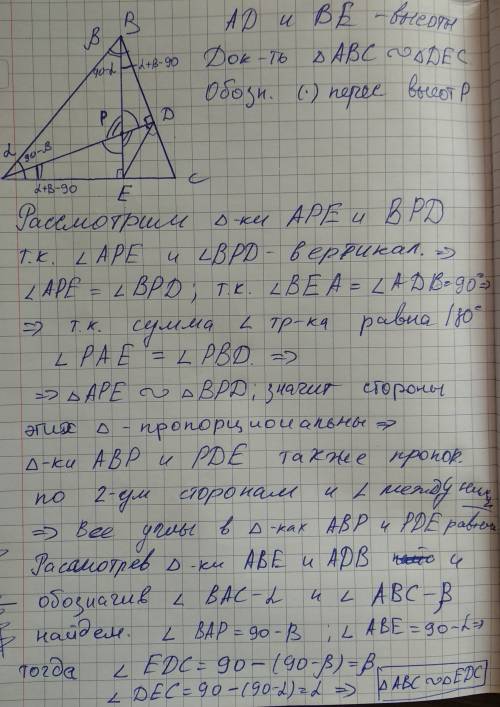 AD и BE - высоты
Док-ть △ABC ∽ △DEC
Обозн. (·) перес высот P
B
β
90-α
α+β-90
P
D
α
90-β
α+β-90
E
C
Рассмотрим △-ки APE и BPD
т.к. ∠APE и ∠BPD - вертикал. ⇒
∠APE = ∠BPD; т.к. ∠BEA = ∠ADB = 90° ⇒
⇒ т.к. сумма ∠ тр-ка равна 180°
∠PAE = ∠PBD. ⇒
⇒ △APE ∽ △BPD; значит стороны
этих △ - пропорциональны ⇒
△-ки ABP и PDE также пропор.
по 2-ум сторонам и ∠ между ними
⇒ Все углы в △-ках ABP и PDE равны
Рассмотрев △-ки ABE и ADB и
обозначив ∠ BAC-α и ∠ ABC-β
найдем. ∠ BAP = 90-β ; ∠ ABE = 90-α ⇒
тогда ∠ EDC = 90-(90-β) = β
∠ DEC = 90-(90-α) = α ⇒ △ABC ∽ △EDC